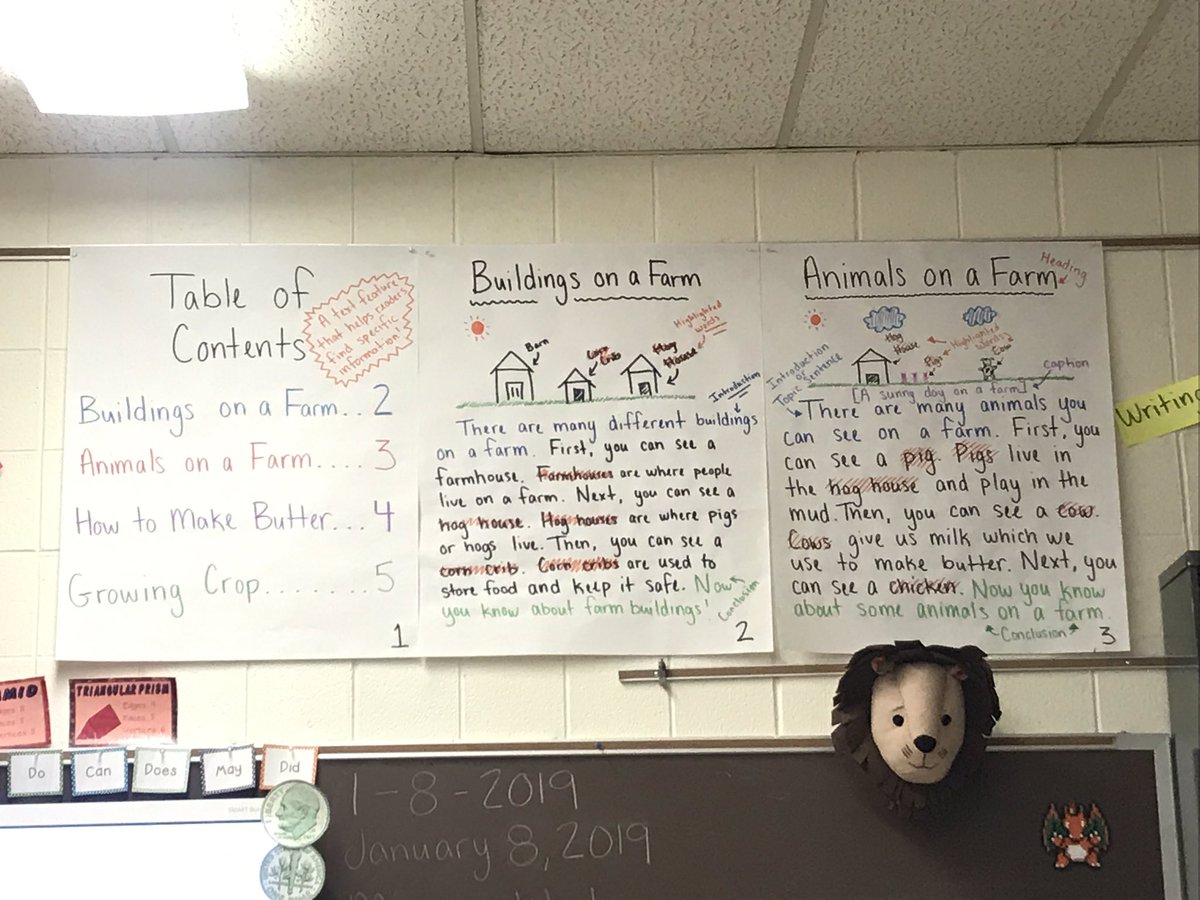 Table of
Contents
A text feature
that helps readers
find specific
information!
Buildings on a Farm.. 2
Animals on a Farm.... 3
How to Make Butter... 4
Growing Crop........ 5
1
Buildings on a Farm
Highlighted
words
Barn
Corn
Crib
Hog
House
Introduction
There are many different buildings
on a farm. First, you can see a
farmhouse. Farmhouses are where people
live on a farm. Next, you can see a
hog house. Hog houses are where pigs
or hogs live. Then, you can see a
corn crib. Corn cribs are used to
store food and keep it safe. Now
you know about farm buildings!
Conclusion
2
Animals on a Farm
Heading
Hog
House
Pigs
Highlighted
Words
Cow
caption
[A sunny day on a farm]
Introduction
or
Topic Sentence
There are many animals you
can see on a farm. First, you
can see a pig. Pigs live in
the hog house and play in the
mud. Then, you can see a cow.
Cows give us milk which we
use to make butter. Next, you
can see a chicken. Now you know
about some animals on a farm.
Conclusion
3
Writing
TRIANGULAR PRISM
Do
Can
Does
May
Did
1-8-2019
January 8, 2019